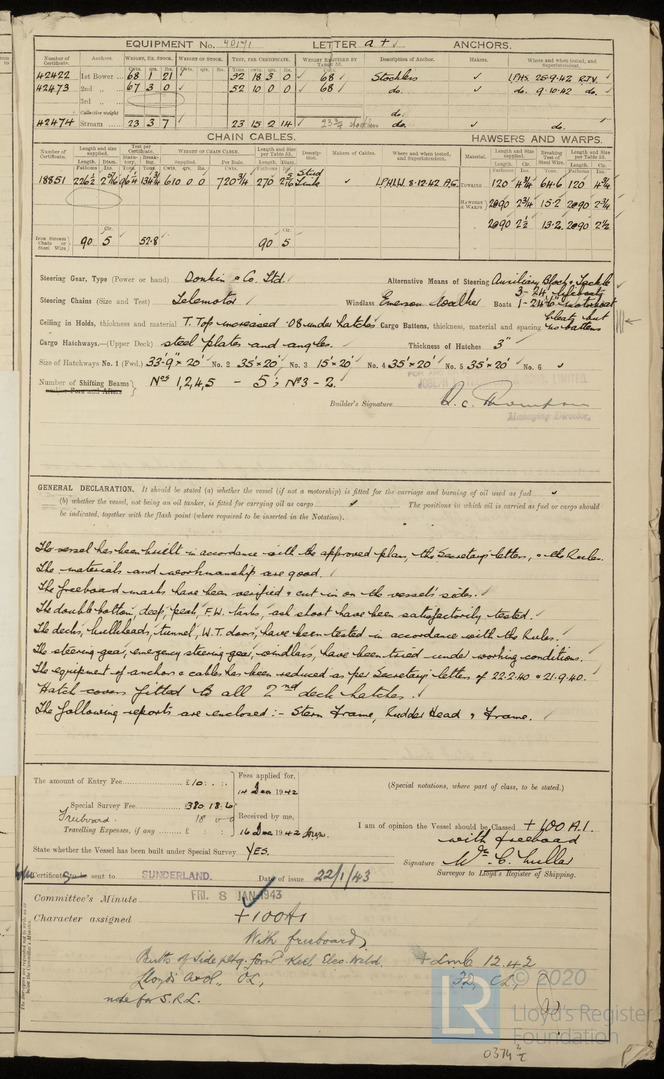 EQUIPMENT No. 40141 LETTER a+ ANCHORS.
Number of Certificate. Anchors. WEIGHT, EX. STOCK. WEIGHT OF STOCK. TEST, PER CERTIFICATE. WEIGHT REQUIRED BY TABLE Description of Anchor. Makers. Where and when tested, and Superintendent.
42422 1st Bower 68 1 21 32 18 3 0 68 Stockless L.P.H.S. 25-9-42 R.J.V.
42473 2nd „ 67 3 0 52 10 0 0 68 do. do. 9-10-42 do.
3rd „
Collective weight do.
42474 Stream 23 3 7 23 15 2 14 do. do.
CHAIN CABLES. HAWSERS AND WARPS.
Number on Certificate. Length and size supplied. Test per Certificate. WEIGHT OF CHAIN CABLE. Length and Size per Table 53. Description. Makers of Cables. Where and when tested, and Superintendent. Material. Length and Size supplied. Breaking Test of Steel Wire. Length and Size per Table 53.
Length. Diam. Tensile. Breaking. Supplied. Per Rule. Length. Diam.
18851 226½ 2 5/16 96¼ 134¾ 610 0 0 720¾ 270 2 5/16 Stud Link L.P.H.W. 8-12-42 A.G. TOWLINE 120 4¾ 64.6 120 4¾
HAWSERS & WARPS 2@90 2¾ 15.2 2@90 2¾
2@90 2½ 13.2 2@90 2½
Iron Stream Chain or Steel Wire 90 5 52.8 90 5
Steering Gear, Type (Power or hand) Donkin & Co. Ltd. Alternative Means of Steering Auxiliary Block & Tackle
Steering Chains (Size and Test) Telemotor Windlass Emerson Walker Boats 3 - 24' lifeboats 1 - 21'6" motorboat
Ceiling in Holds, thickness and material T. Top increased .08 under hatches Cargo Battens, thickness, material and spacing Cleats but no battens
Cargo Hatchways.—(Upper Deck) steel plates and angles. Thickness of Hatches 3"
Size of Hatchways No. 1 (Fwd.) 33'-9" × 20' No. 2 35' × 20' No. 3 15' × 20' No. 4 35' × 20' No. 5 35' × 20' No. 6
Number of Shifting Beams Nos 1, 2, 4, 5 - 5; No 3 - 2.
Builder's Signature R. C. Thompson
Managing Director.
GENERAL DECLARATION. It should be stated (a) whether the vessel (if not a motorship) is fitted for the carriage and burning of oil used as fuel
(b) whether the vessel, not being an oil tanker, is fitted for carrying oil as cargo The positions in which oil is carried as fuel or cargo should
be indicated, together with the flash point (where required to be inserted in the Notation).
The vessel has been built in accordance with the approved plans, the Secretary's letters, & the Rules.
The materials and workmanship are good.
The freeboard marks have been verified & cut in on the vessel's sides.
The double bottom, deep, peak, F.W. tanks, ash shoot have been satisfactorily tested.
The decks, bulkheads, tunnel, W.T. doors, have been tested in accordance with the Rules.
The steering gear, emergency steering gear, windlass, have been tried under working conditions.
The equipment of anchors & cables has been reduced as per Secretary's letters of 22.2.40 & 21.9.40.
Hatch covers fitted to all 2nd deck hatches.
The following reports are enclosed :- Stern Frame, Rudder Head & Frame.
The amount of Entry Fee £10 : : Fees applied for, 14 Dec 1942 (Special notations, where part of class, to be stated.)
Special Survey Fee £380 : 18 : 6
Freeboard 18 0 0 Received by me,
Travelling Expenses, if any £ : : 16 Dec 1942
I am of opinion the Vessel should be Classed + 100 A.1.
with freeboard
State whether the Vessel has been built under Special Survey YES.
Signature Wm. C. Miller
Surveyor to Lloyd's Register of Shipping.
Certificate to be sent to SUNDERLAND. Date of issue 22/1/43
Committee's Minute FRI. 8 JAN 1943
Character assigned + 100A1
With freeboard,
Butts of side pltg. forwd. Keel Elec. Weld. + LMC 12.42
Lloyd's A & C., OL, FD, CL,
note for S.R.L.
LR © 2020
Lloyd's Register
Foundation
0374